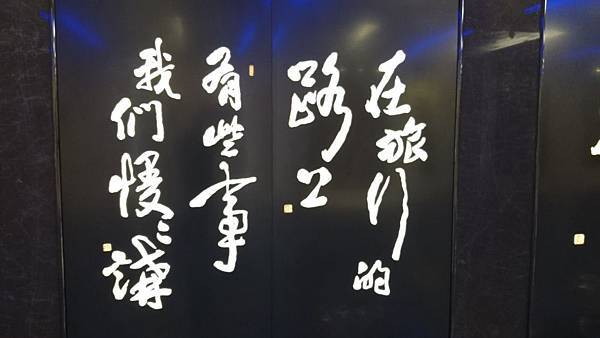 在旅行的
路上
有些事
我们慢々講